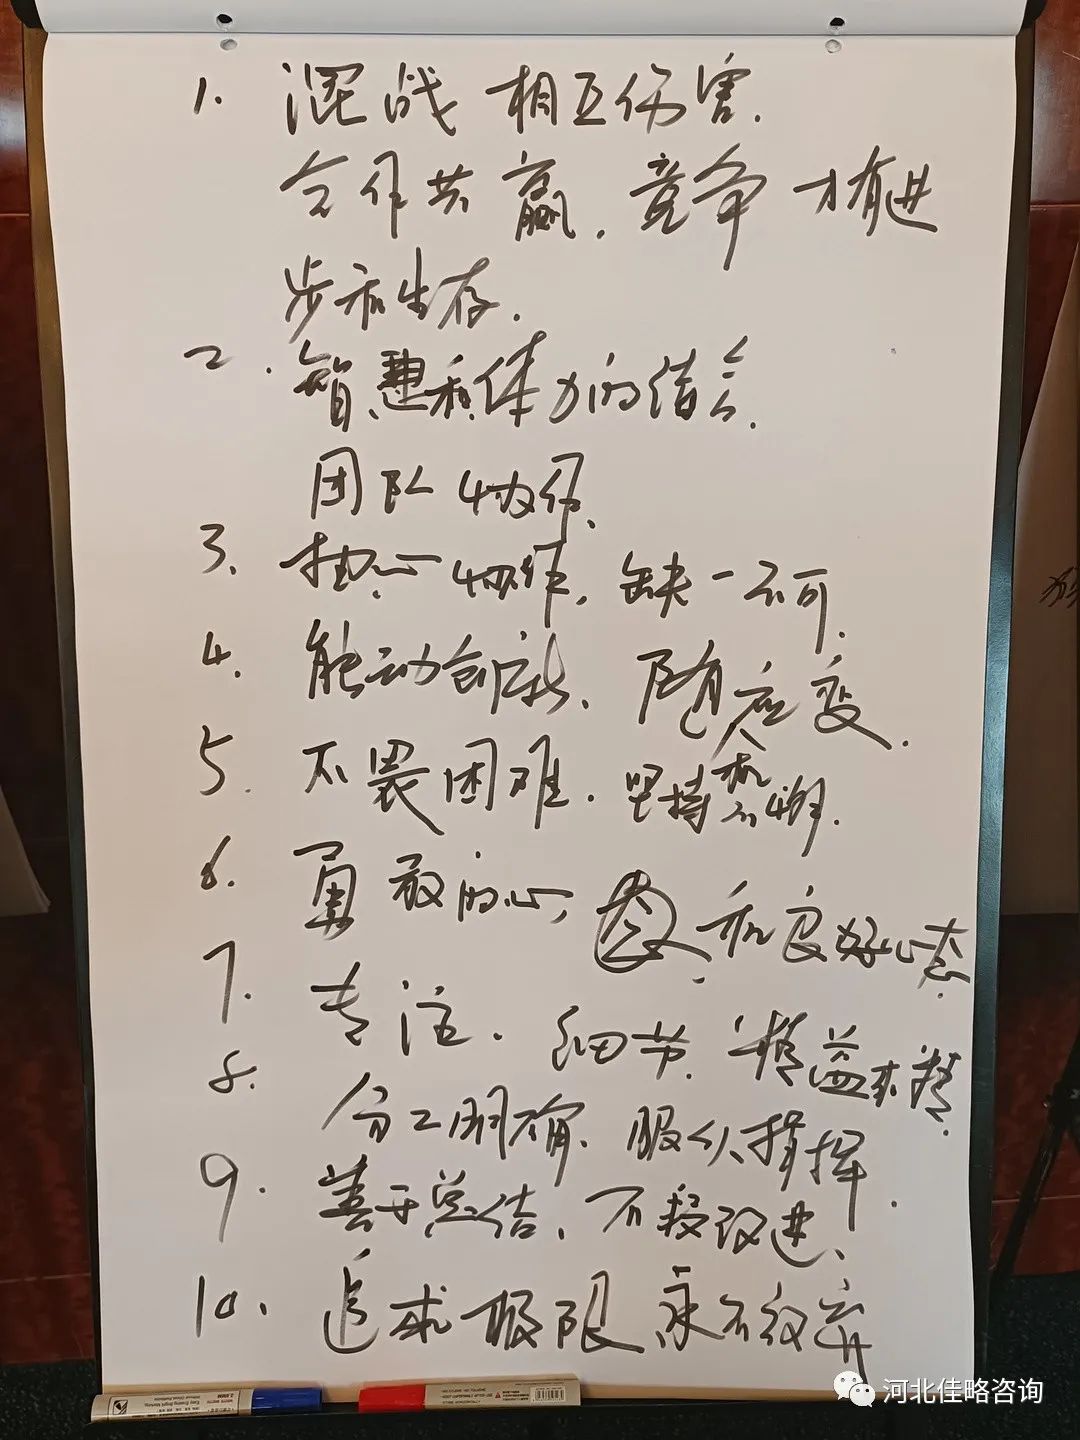 1. 混战 相互伤害.
合作共赢. 竞争才有进
步和生存.
2. 智慧和体力的结合.
团队协作.
3. 核心 缺一不可.
4. 能动创新、随机应变.
5. 不畏困难. 坚持不懈.
6. 勇敢的心, 和良好心态.
7. 专注. 细节. 精益求精.
8. 分工明确. 服从指挥.
9. 善于总结、不段改进、
10. 追求极限 永不放弃
河北佳略咨询